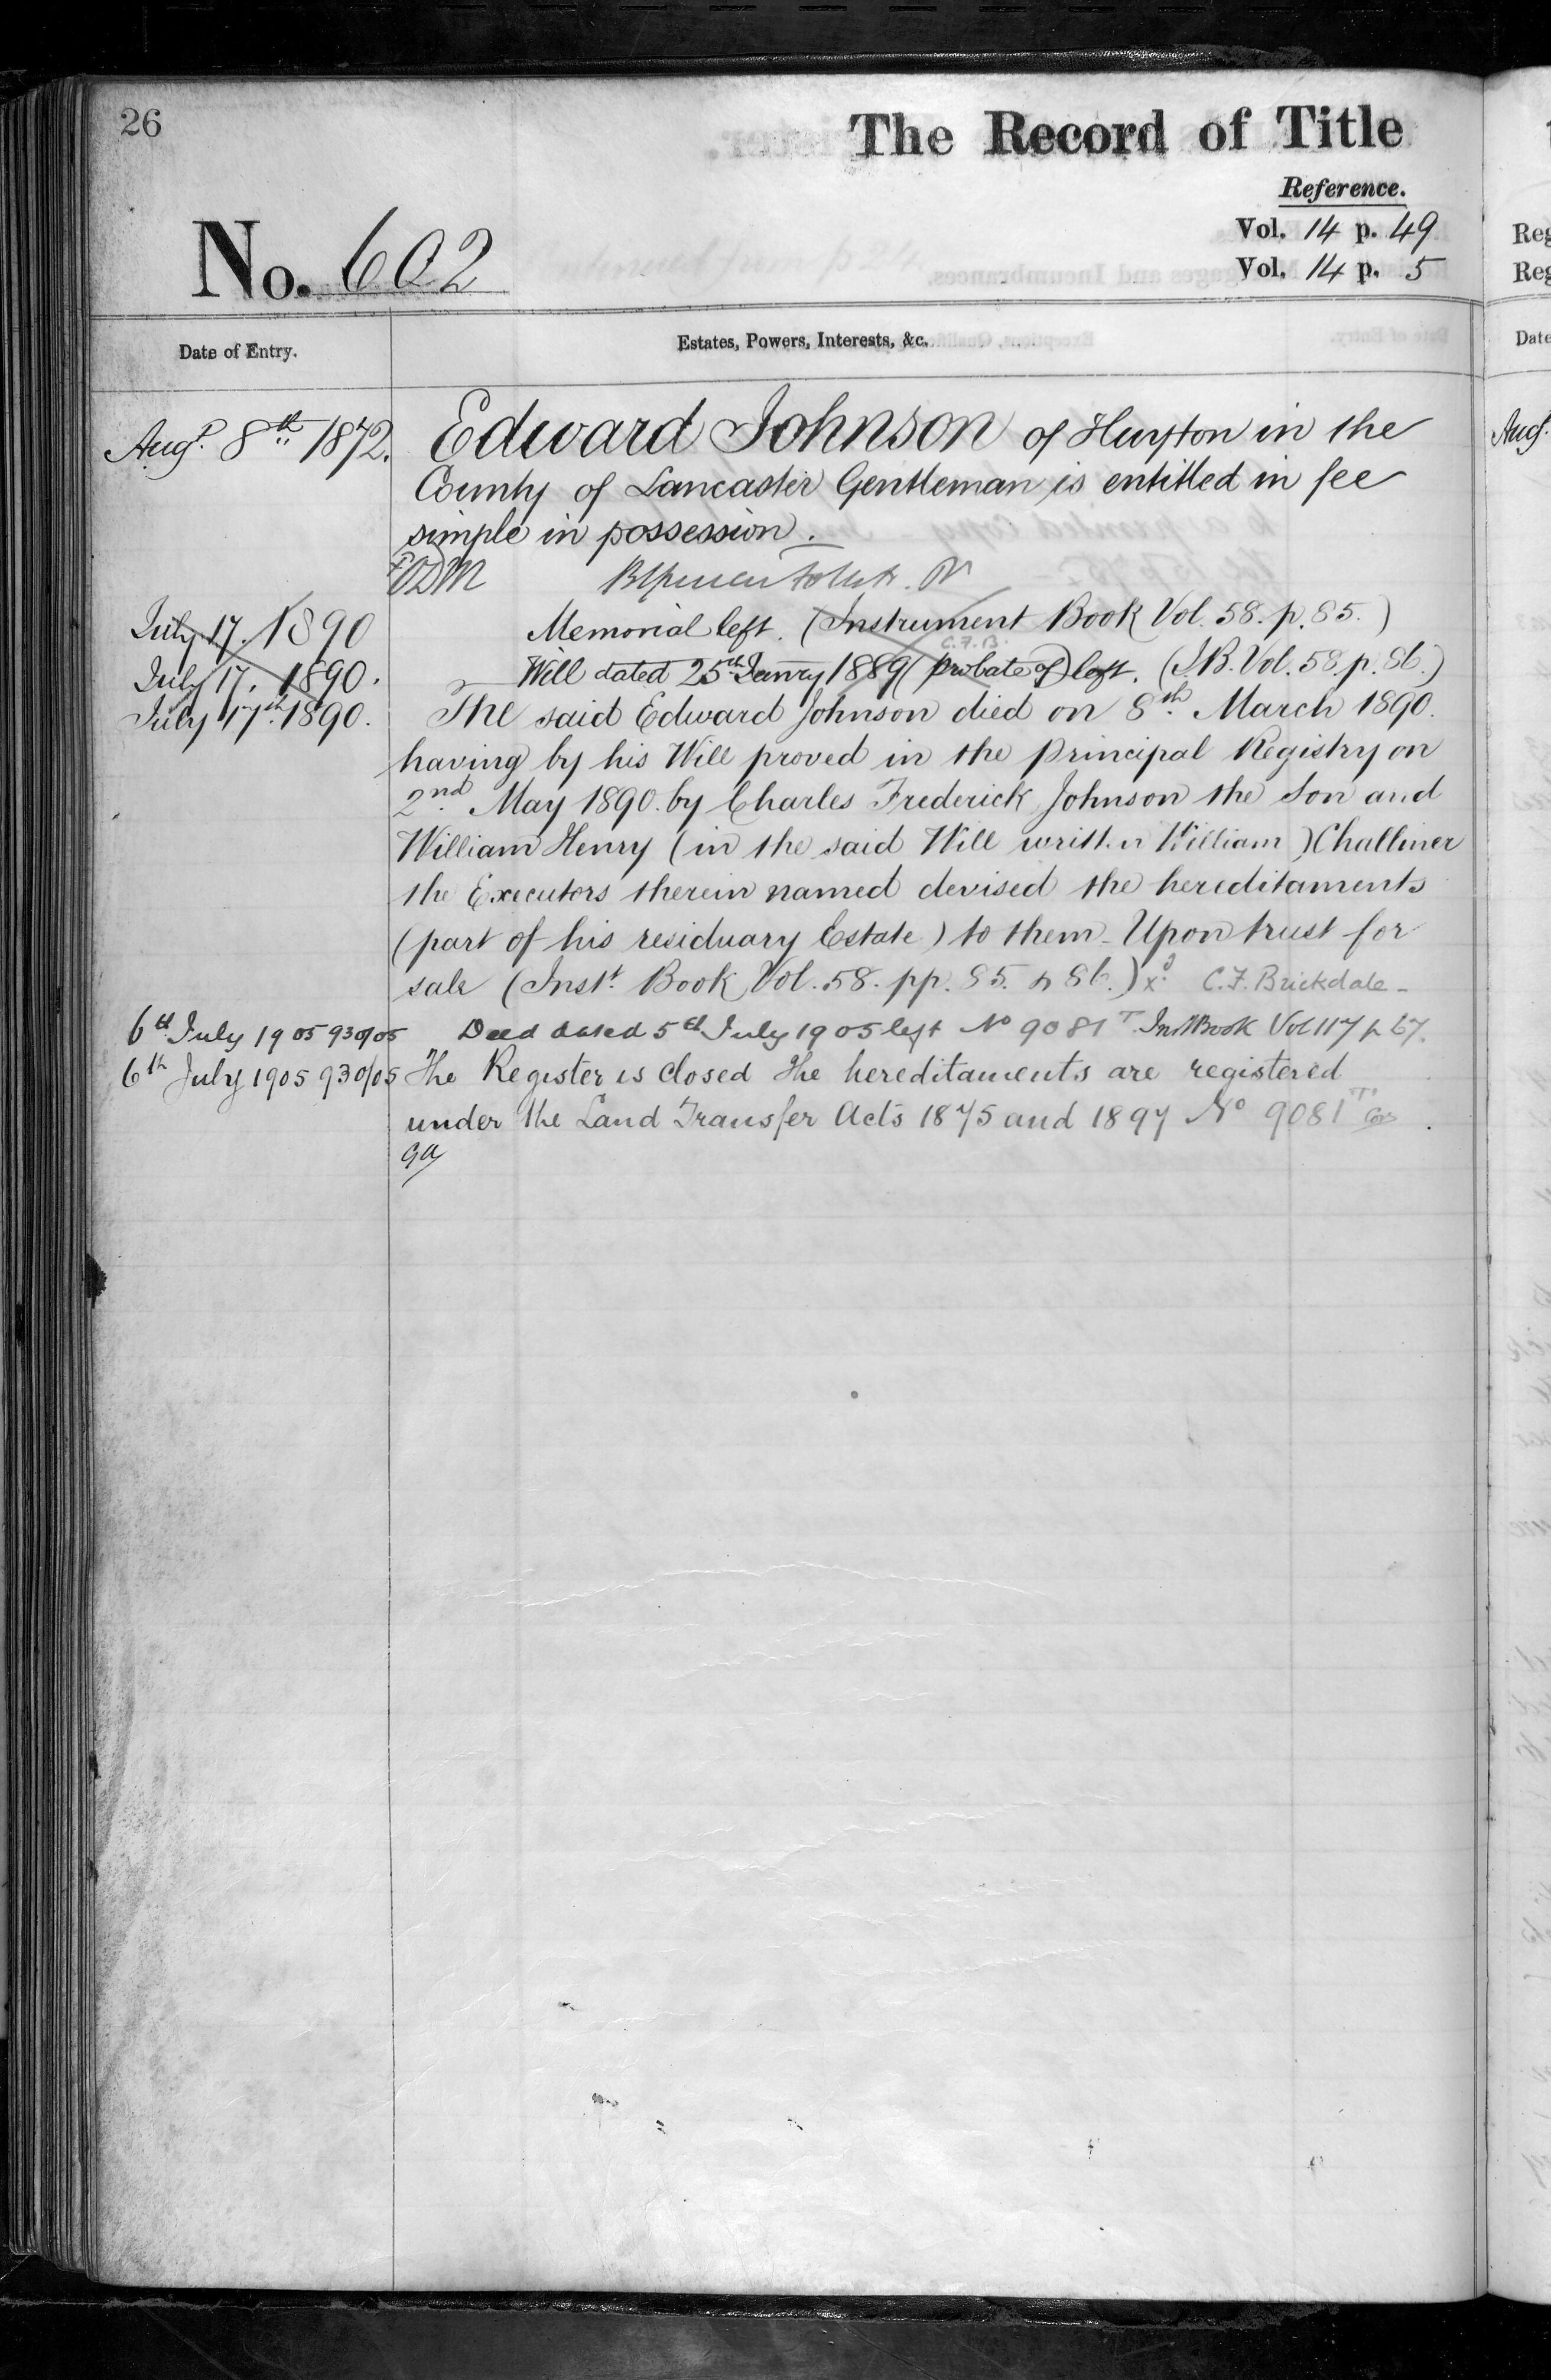 26
The Record of Title
Reference.
Vol. 14 p. 49
No. 602
Vol. 14 p. 5
Date of Entry.
Estates, Powers, Interests, &c.
Augt. 8th 1872.
Edward Johnson of Huyton in the
County of Lancaster Gentleman is entitled in fee
simple in possession.
July 17. 1890
Memorial left. (Instrument Book Vol. 58. p. 85.)
C.F.B.
July 17. 1890.
Will dated 25th Janry 1889 (probate of) left. (I.B. Vol. 58. p. 86.)
July 17th 1890.
The said Edward Johnson died on 8th March 1890.
having by his Will proved in the Principal Registry on
2nd May 1890. by Charles Frederick Johnson the Son and
William Henry (in the said Will written William) Challiner
the Executors therein named devised the hereditaments
(part of his residuary Estate) to them Upon trust for
sale (Inst. Book Vol. 58. pp. 85. & 86.) xd. C.F. Brickdale
6th July 1905 930/05
Deed dated 5th July 1905 left No 9081 T Inst Book Vol 117 p 67.
6th July 1905 930/05
The Register is closed The hereditaments are registered
under the Land Transfer Acts 1875 and 1897 No 9081 T
Reg
Reg
Date
Aug.